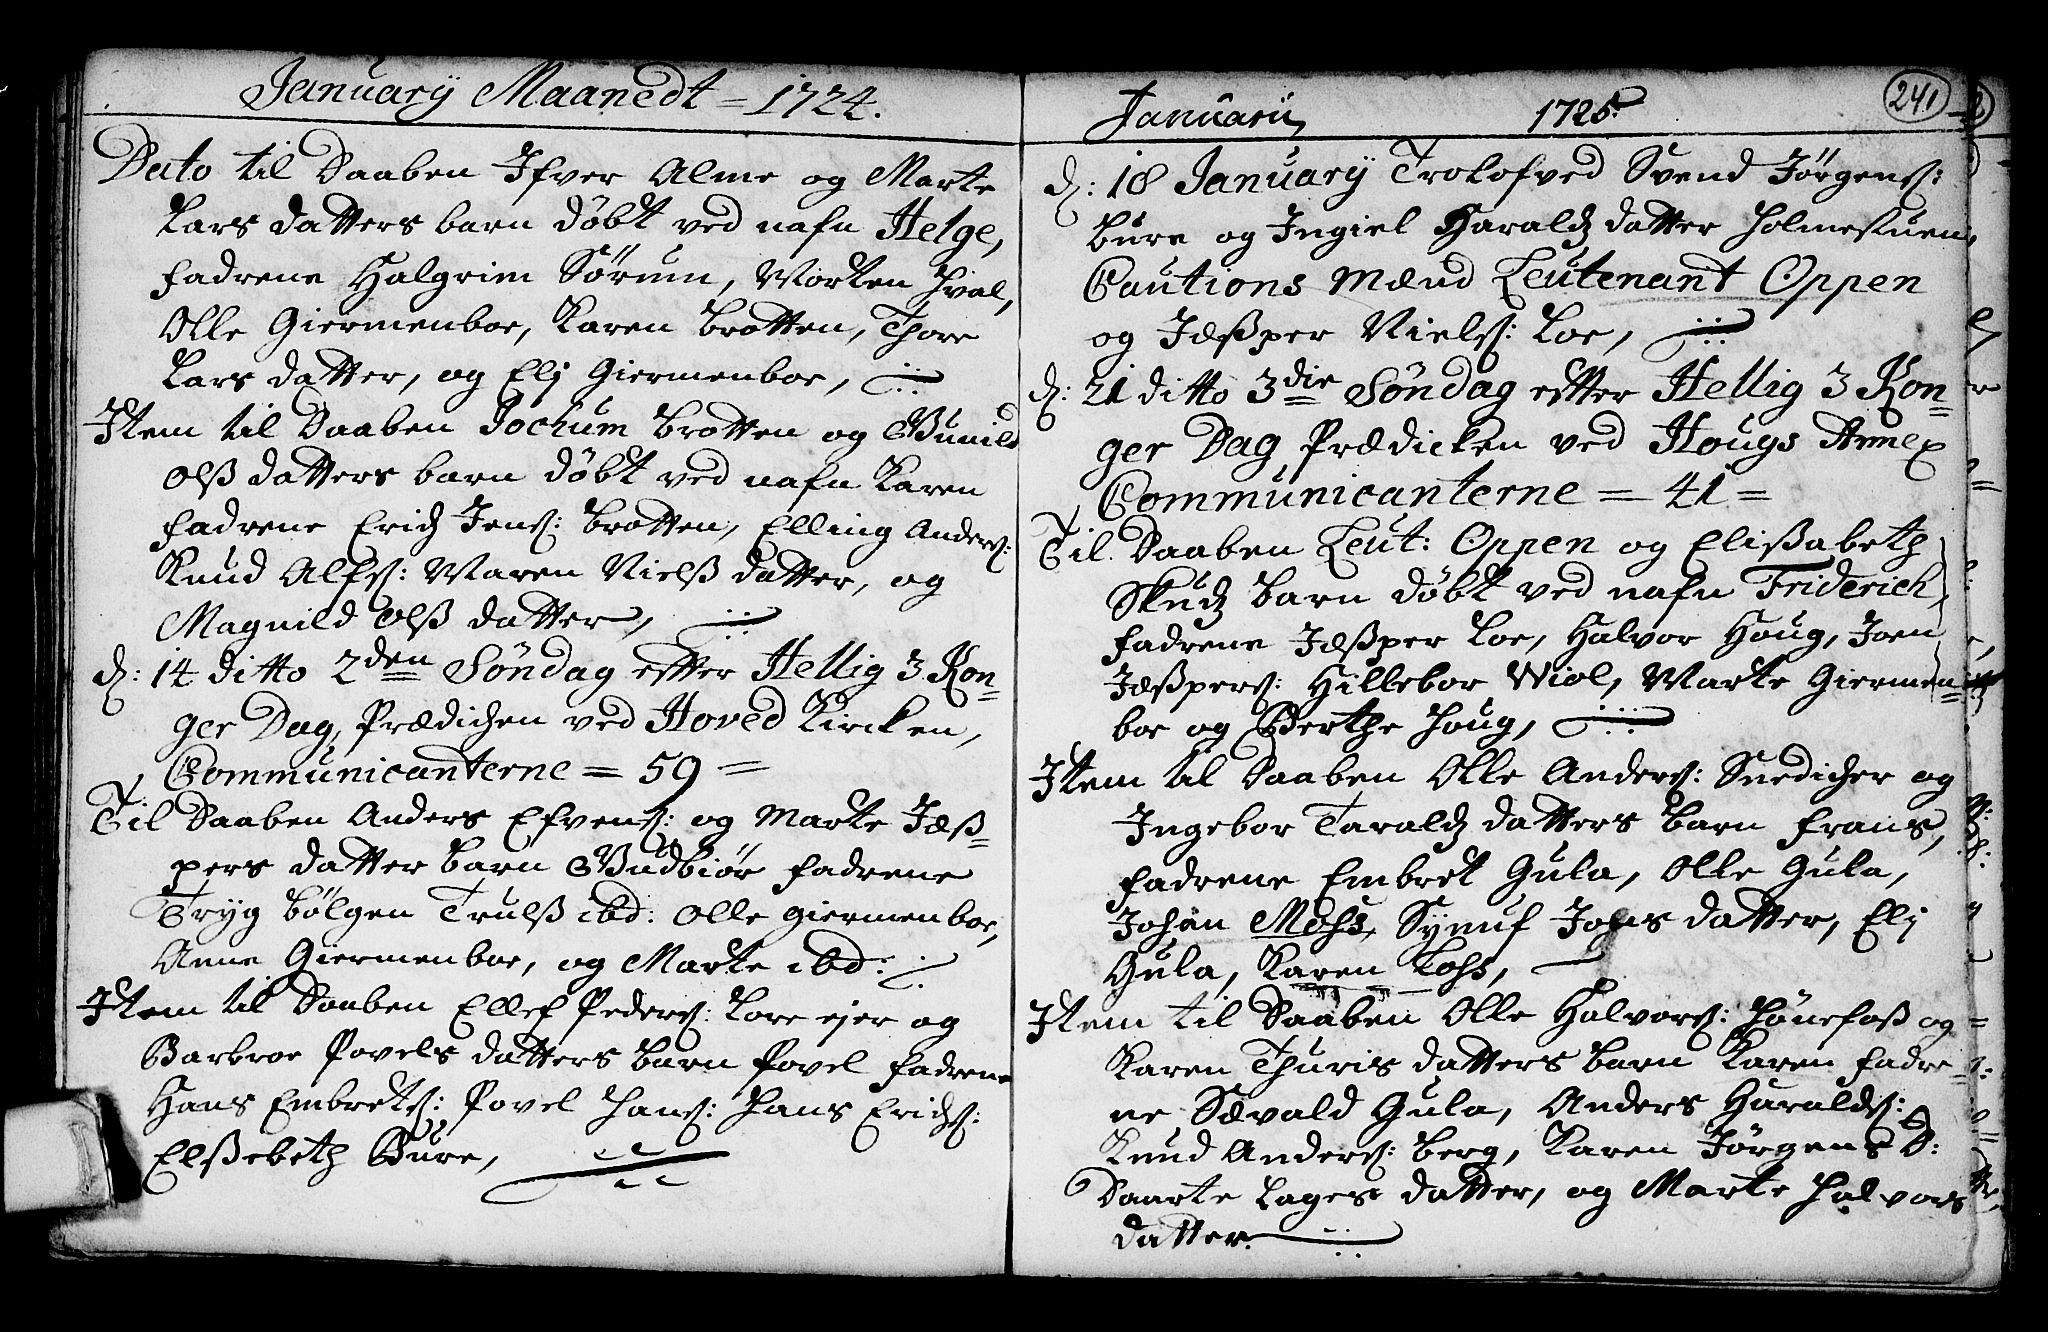 Januarÿ Maanedt = 1724.
Dato til Daaben Ifver Alme og Marte
Lars datters barn döbt ved nafn Helge,
fadrene Halgrim Sörum, Morten Hval,
Olle Giermenboe, Karen Bratten, Thore
Lars datter, og Elj Giermenboe,
Item til Daaben Jochum Bratten og Gunild
Olß datters barn döbt ved nafn Karen
fadrene Erich Jens: Bratten, Elling Anders:
Knud Alfs: Maren Nielß datter, og
Magnild Olß datter,
d: 14 ditto 2den Söndag efter Hellig 3 Kon=
ger Dag, Prædichen ved Hoved Kircken,
Communicanterne = 59 =
Til Daaben Anders Efvens: og Marte Jæß=
pers datter barn Gudbiör fadrene
Tryg Bölgen Trulß ibd: Olle Giermenboe,
Anne Giermenboe, og Marte ibd:
Item til Daaben Ellef Peders: Lore ejer og
Barbroe Povels datters barn Povel fadrene
Hans Embrets: Povel Hans: Hans Erichs:
Elßebeth Bure,
Januarii 1725.
241
d: 18 Januarÿ Trolofved Svend Jörgens:
Bure og Ingiel Haralds datter Holmestuen,
Cautions Mænd Leutenant Oppen
og Jæßper Niels: Loe,
d: 21 ditto 3die Söndag efter Hellig 3 Kon=
ger Dag, Prædicken ved Hougs Annex
Communicanterne = 41 =
Til Daaben Leut: Oppen og Elißabeth
Skudz barn döbt ved nafn Friderich,
fadrene Jæßper Loe, Halvor Houg, Joen
Jæßpers: Hillebor Wiol, Marte Giermen=
boe og Berthe Houg,
Item til Daaben Olle Anders: Snedicher og
Ingebor Taralds datters barn Frans,
fadrene Embret Gula, Olle Gula,
Johan Mohs, Synuf Johs datter, Elj
Gula, Karen Lohs,
Item til Daaben Olle Halvors: Hönefoß og
Karen Thuris datters barn Karen fadre=
ne Sævald Gula, Anders Haralds:
Knud Anders: Berg, Karen Jörgens D:
Daarte Lages datter, og Marte Halvors
datter.